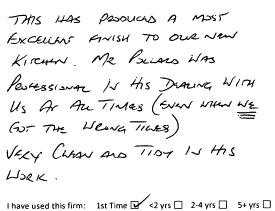 THIS HAS PRODUCED A MOST
EXCELLENT FINISH TO OUR NEW
KITCHEN. MR POLLARD WAS
PROFESSIONAL IN HIS DEALING WITH
US AT ALL TIMES (EVEN WHEN WE
GOT THE WRONG TILES)
VERY CLEAN AND TIDY IN HIS
WORK.
I have used this firm: 1st Time ☑ <2 yrs ☐ 2-4 yrs ☐ 5+ yrs ☐